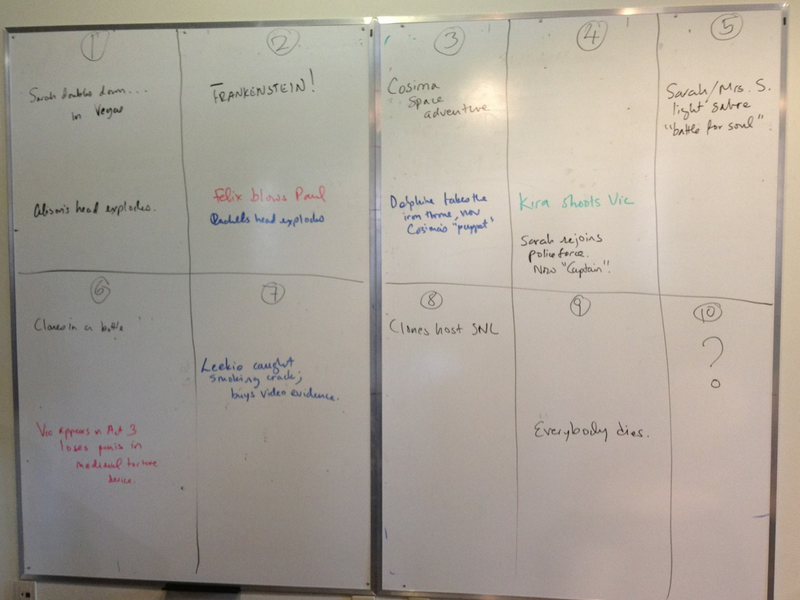 1
Sarah doubles down...
in Vegas
Alison's head explodes.
2
FRANKENSTEIN!
Felix blows Paul
Rachel's head explodes
3
Cosima
Space
adventure
Delphine takes the
iron throne, now
Cosima's "puppet"
4
Kira shoots Vic
Sarah rejoins
police force.
Now "Captain".
5
Sarah/Mrs. S.
light sabre
"battle for soul".
6
Clones in a bottle
Vic appears in Act 3
loses penis in
medieval torture
device.
7
Leekie caught
smoking crack;
buys video evidence.
8
Clones host SNL
9
Everybody dies.
10
?